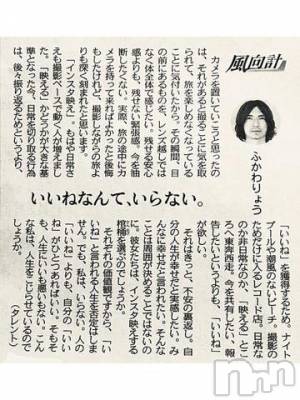 風向計
ふかわりょう
いいねなんて、いらない。
カメラを置いていこうと思ったの
は、それがあると撮ることに気を取
られて、旅を楽しめなくなっている
ことに気付いたから。その瞬間、目
の前にあるものを、レンズ越しでは
なく体全体で感じたい。残せる安心
感よりも、残せない緊張感。今を油
断したくない。実際、旅の途中にカ
メラを持って来ればよかったと後悔
もしたけれど、撮影しながらの旅よ
りも深く刻まれたと思います。
「インスタ映え」。もはや食事さ
えも撮影ベースで動く人々が増えまし
た。「映える」かどうかが大きな基
準となった今、日常を切り取る行為
は、後々振り返るためというより、
「いいね」を獲得するため。ナイト
プールや潮風のないビーチ。撮影の
ためだけに入るレコード店。日常な
のか非日常なのか、「映える」とこ
ろへ東奔西走。今を共有したい、報
告したいというよりも、「いいね」
が欲しい。
それはきっと、不安の裏返し。自
分の人生が幸せだと実感したい。み
んなに幸せだと言われたい。そんな
ことは周囲が決めることではないの
に。彼女たちは、インスタ映えする
棺桶を選ぶのでしょうか。
それぞれの価値観ですから、「い
いね」と言われる人生を否定はしま
せん。でも、私は、いらない。人の
「いいね」よりも、自分の「いい
ね」がひとつあればいい。そもそ
も、人生にいいも悪いもない。こん
な私は、人生をこじらせているので
しょうか。
(タレント)